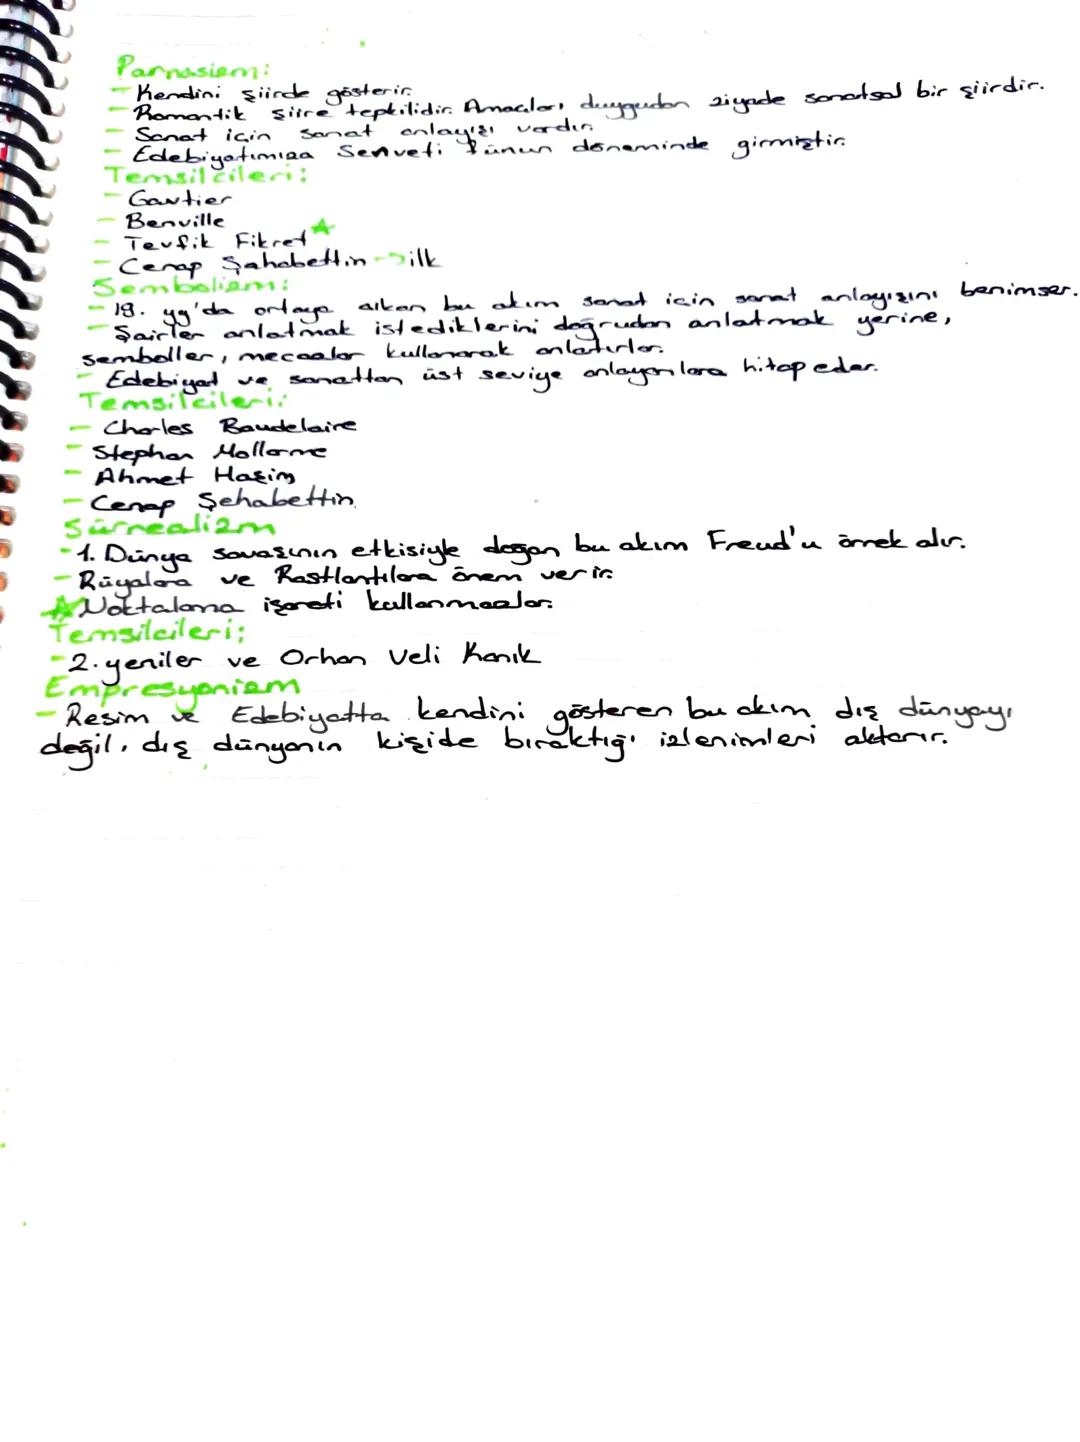 Parnasizm:
- Kendini şiirde gösterir.
- Romantik şiire tepkilidir. Amaçları duygudan ziyade sanatsal bir şiirdir.
- Sanat için sanat anlayışı vardır.
- Edebiyatımıza Serveti Fünun döneminde girmiştir.
Temsilcileri:
- Gautier
- Benville
- Tevfik Fikret ★
- Cenap Şahabettin -> ilk
Sembolizm:
- 19. yy'da ortaya çıkan bu akım sanat için sanat anlayışını benimser.
- Şairler anlatmak istediklerini doğrudan anlatmak yerine,
semboller, mecazlar kullanarak anlatırlar.
- Edebiyat ve sanattan üst seviye anlayanlara hitap eder.
Temsilcileri:
- Charles Baudelaire
- Stephan Mallarme
- Ahmet Haşim
- Cenap Şehabettin
Sürrealizm
- 1. Dünya savaşının etkisiyle doğan bu akım Freud'u örnek alır.
- Rüyalara ve Rastlantılara önem verir.
★ Noktalama işareti kullanmazlar.
Temsilcileri;
- 2. yeniler ve Orhan Veli Kanık
Empresyonizm
- Resim ve Edebiyatta kendini gösteren bu akım dış dünyayı
değil, dış dünyanın kişide bıraktığı izlenimleri aktarır.